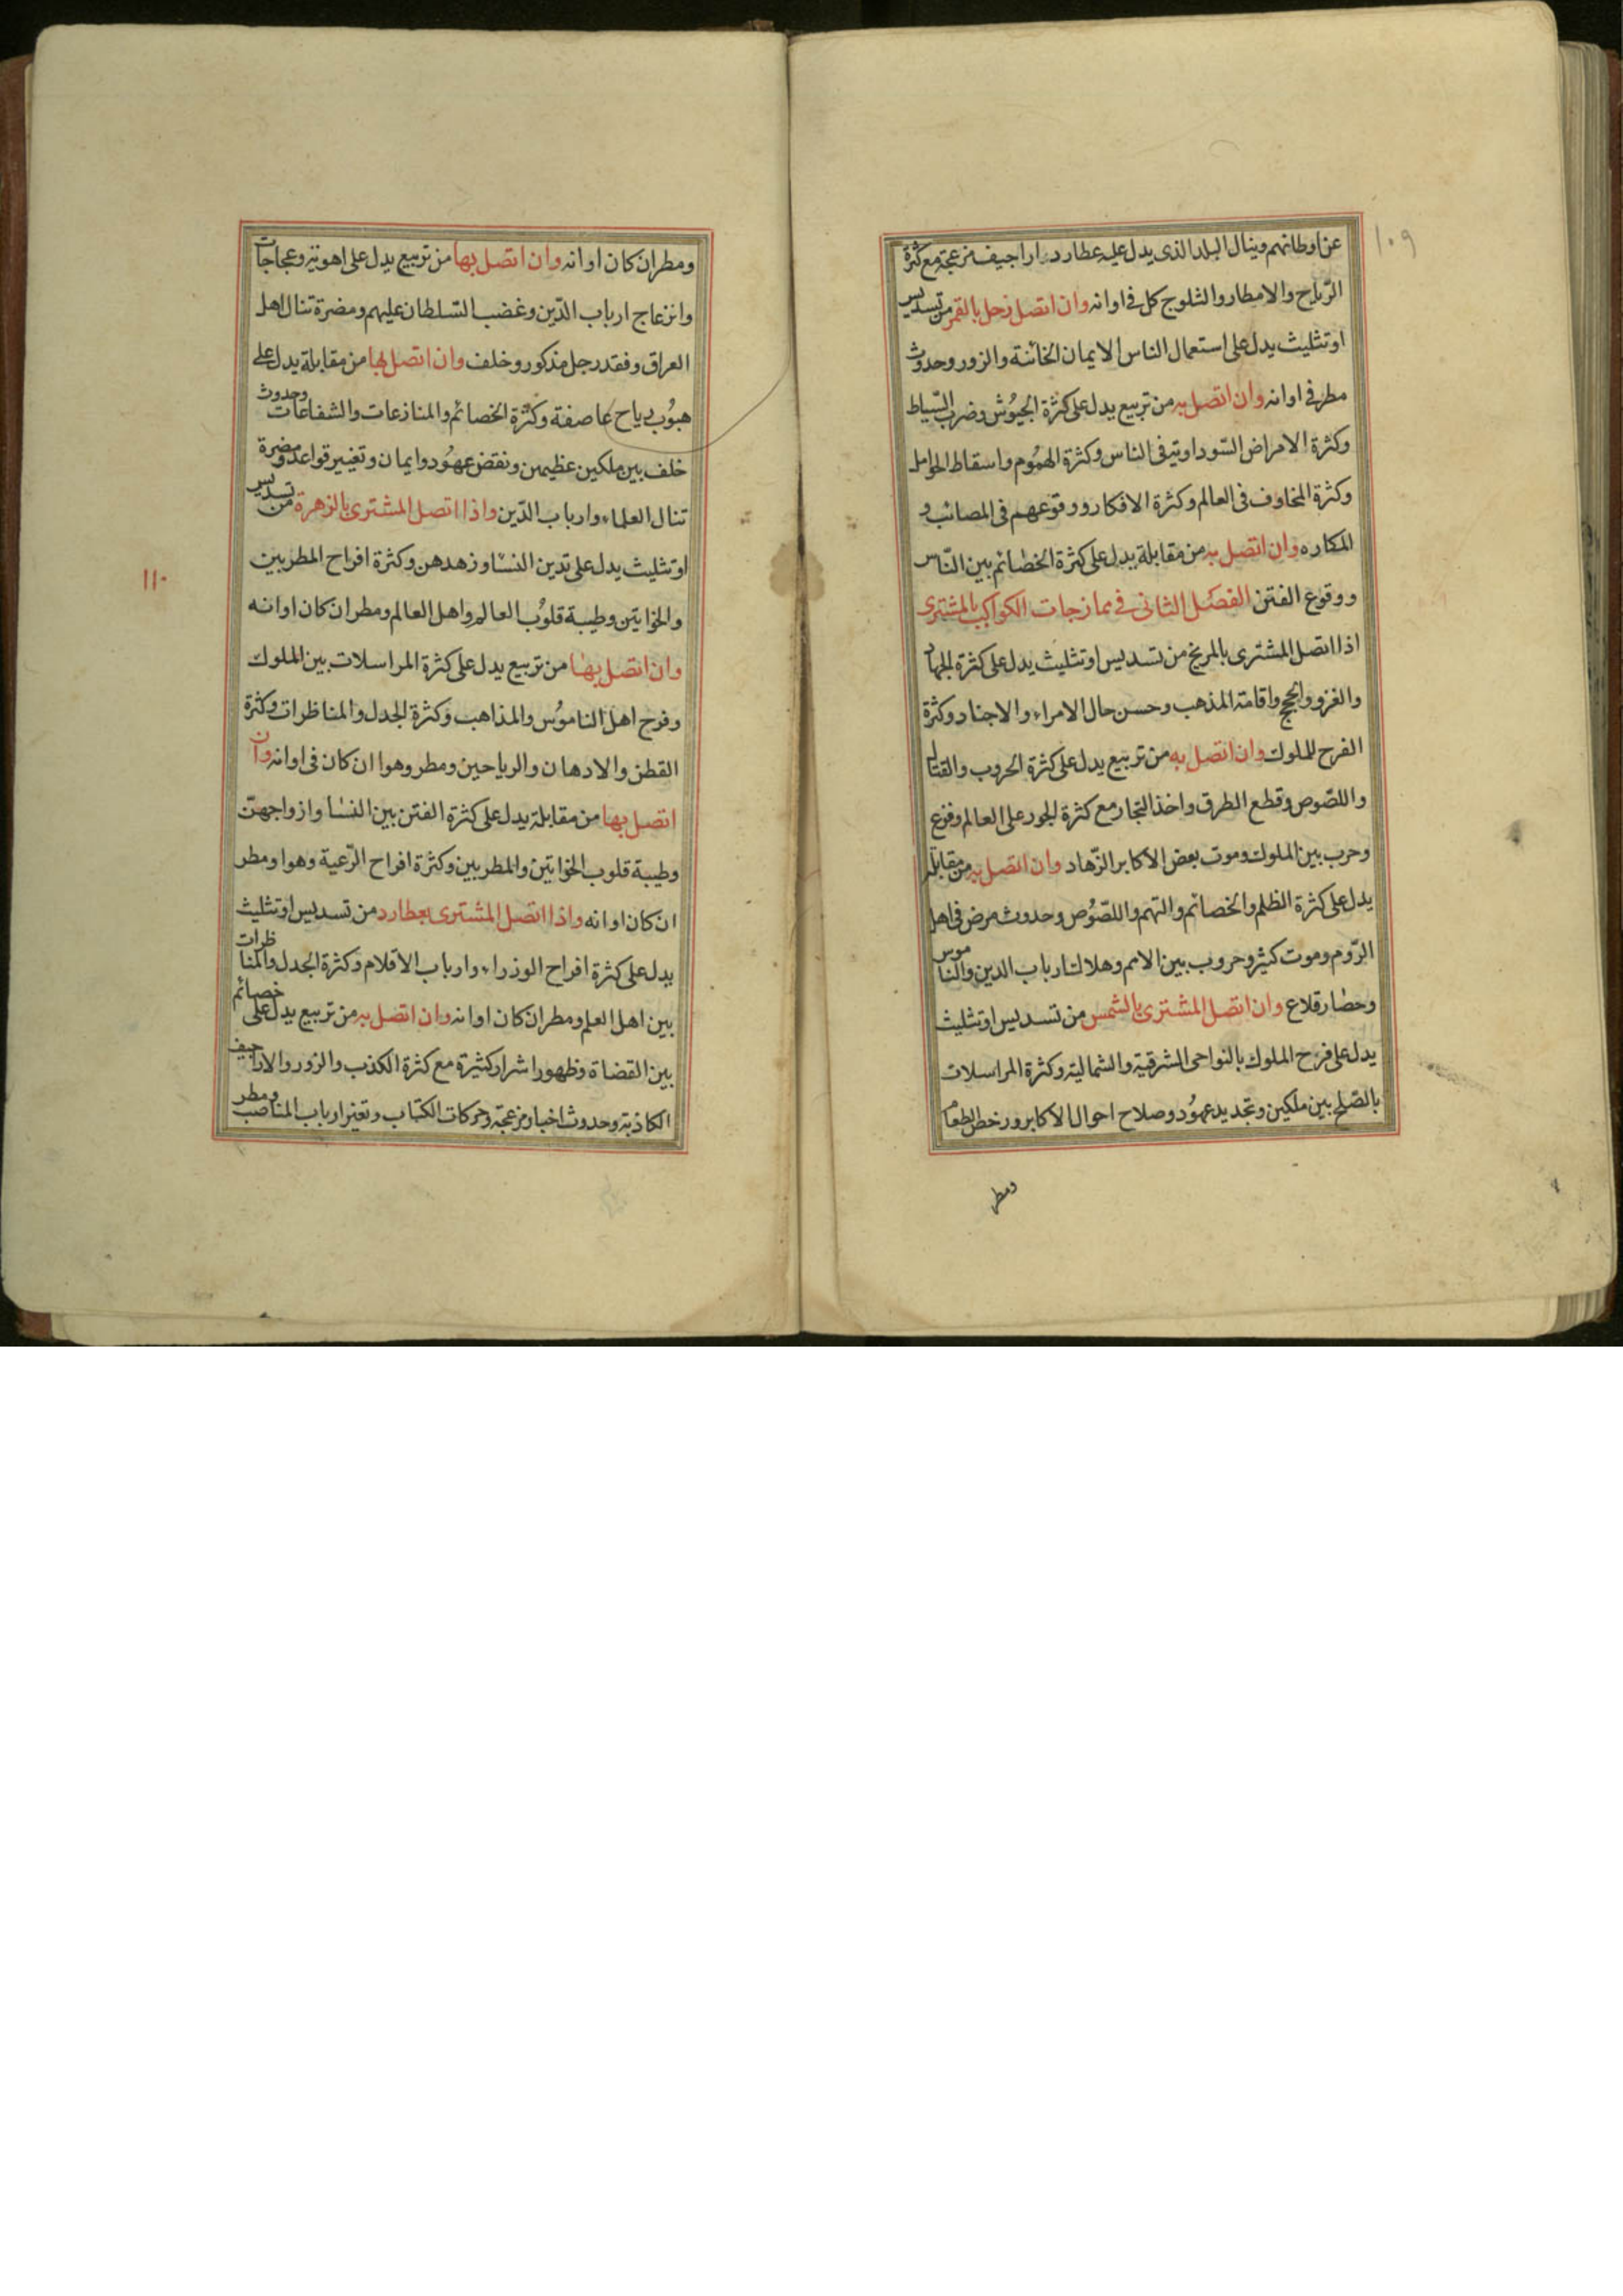 ١٠٩
عن اوطانهم وينال البلد الذى يدل عليه عطارد اراجيف مزعجة مع كثرة
الرّياح والامطار والثلوج كل فى اوانه وان اتصل زحل بالقمر من تسديس
اوتثليث يدل على استعمال الناس الايمان الخائنة والزور وحدوث
مطر فى اوانه وان اتصل به من تربيع يدل على كثرة الجيوُش وضرب السّياط
وكثرة الامراض السّوداوية فى الناس وكثرة الهمُوم واسقاط الحوامل
وكثرة المخاوف فى العالم وكثرة الافكار ووقوعهم فى المصائب و
المكاره وان اتصل به من مقابلة يدل على كثرة الخصائم بين النّاس
ووقوع الفتن الفصَل الثانى فى ممازجات الكواكب بالمشترى
اذا اتصل المشترى بالمريخ من تسديس اوتثليث يدل على كثرة الجهاد
والغزو والحج واقامة المذهب وحسن حال الامراء والاجناد وكثرة
الفرح للملوك وان اتصل به من تربيع يدل على كثرة الحروب والقتال
واللصّوص وقطع الطرق واخذ التجار مع كثرة الجور على العالم وفزع
وحرب بين الملوك وموت بعض الاكابر الزّهاد وان اتصل به من مقابلة
يدل على كثرة الظلم والخصائم والتهم واللصّوُص وحدوث مرض فى اهل
الرّوم وموت كثير وحروب بين الامم وهلاك ارباب الدين والناموس
وحصار قلاع وان اتصل المشترى بالشمس من تسديس اوتثليث
يدل على فرح الملوك بالنواحى الشرقية والشمالية وكثرة المراسلات
بالصّلح بين ملكين وتجديد عهوُد وصلاح احوال الاكابر ورخص الطعام
ومطر
١١٠
ومطر ان كان اوانه وان اتصل بها من تربيع يدل على اهوية وعجاجات
وانزعاج ارباب الدّين وغضب السّلطان عليهم ومضرة تنال اهل
العراق وفقد رجل مذكور وخلف وان اتصل بها من مقابلة يدل على
هبوُب رياح عاصفة وكثرة الخصائم والمنازعات والشفاعات وحدوث
خلف بين ملكين عظيمين ونقض عهوُد وايمان وتغيير قواعد ومضرة
تنال العلماء وارباب الدّين واذا اتصل المشترى بالزهرة من تسديس
اوتثليث يدل على تدين النسَا وزهدهن وكثرة افراح المطربين
والخواتين وطيبة قلوُب العالم واهل العالم ومطر ان كان اوانه
وان اتصل بها من تربيع يدل على كثرة المراسلات بين الملوك
وفرح اهل الناموُس والمذاهب وكثرة الجدل والمناظرات وكثرة
القطن والادهان والرياحين ومطر وهوا ان كان فى اوانه وان
اتصل بها من مقابلة يدل على كثرة الفتن بين النسَا وازواجهنّ
وطيبة قلوب الخواتين والمطربين وكثرة افراح الرّعية وهوا ومطر
ان كان اوانه واذا اتصل المشترى بعطارد من تسديس اوتثليث
يدل على كثرة افراح الوزراء وارباب الاقلام وكثرة الجدل والمناظرات
بين اهل العلم ومطر ان كان اوانه وان اتصل به من تربيع يدل على خصائم
بين القضاة وظهور اشرار كثيرة مع كثرة الكذب والزور والاراجيف
الكاذبة وحدوث اخبار مزعجة وحركات الكتاب وتغير ارباب المناصب ومطر